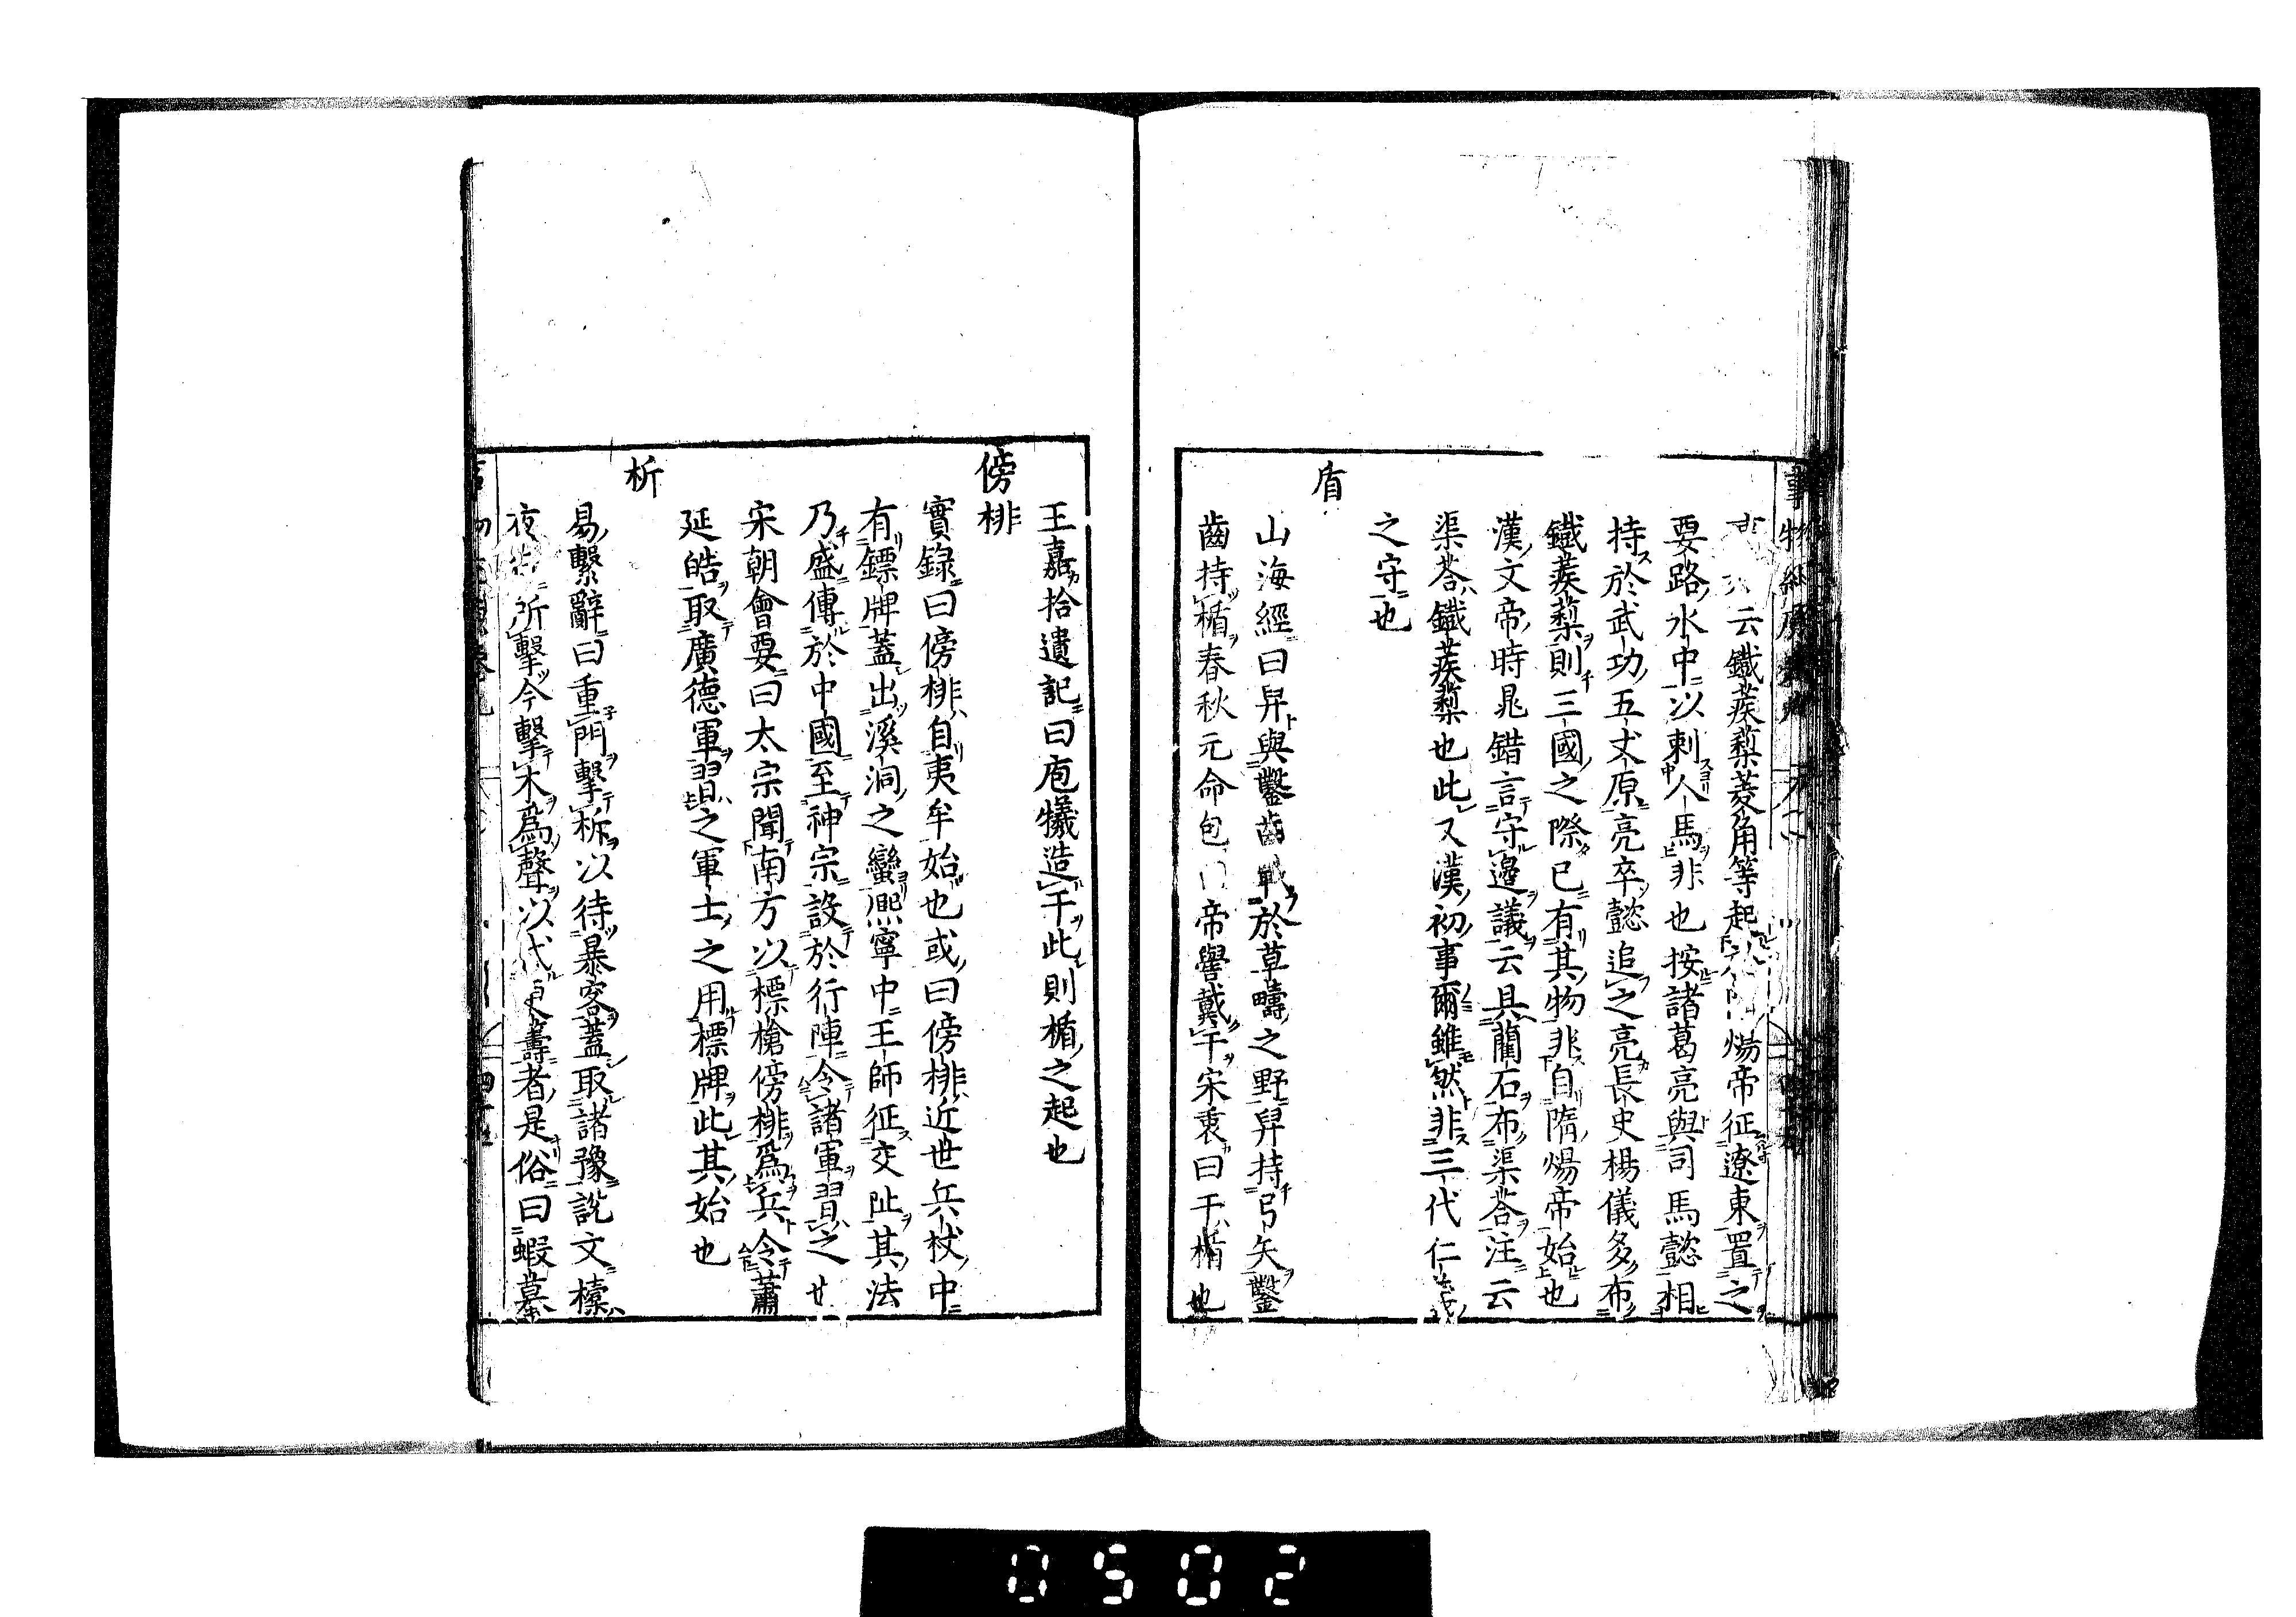 事物紀原
云鐵蒺蔾菱角等起煬帝征遼東置之
要路水中以刺人馬非也按諸葛亮與司馬懿相
持於武功五丈原亮卒懿追之亮長史楊儀多布
鐵蒺蔾則三國之際已有其物非自隋煬帝始也
漢文帝時晁錯言守邊議云具藺石布渠荅注云
渠荅鐵蒺蔾也此又漢初事爾雖然非三代仁義
之守也
盾
山海經曰羿與鑿齒戰於草疇之野羿持弓矢鑿
齒持楯春秋元命包曰帝嚳戴干宋衷曰干楯也
王嘉拾遺記曰庖犧造干此則楯之起也
傍排
實錄曰傍排自夷牟始也或曰傍排近世兵杖中
有鏢牌蓋出溪洞之蠻熈寧中王師征交阯其法
乃盛傳於中國至神宗設於行陣令諸軍習之
宋朝會要曰太宗聞南方以標槍傍排為兵令蕭
延皓取廣德軍習之軍士之用標牌此其始也
柝
易繫辭曰重門擊柝以待暴客蓋取諸豫說文㯱
夜所擊今擊木為聲以代更籌者是俗曰蝦蟇
0502